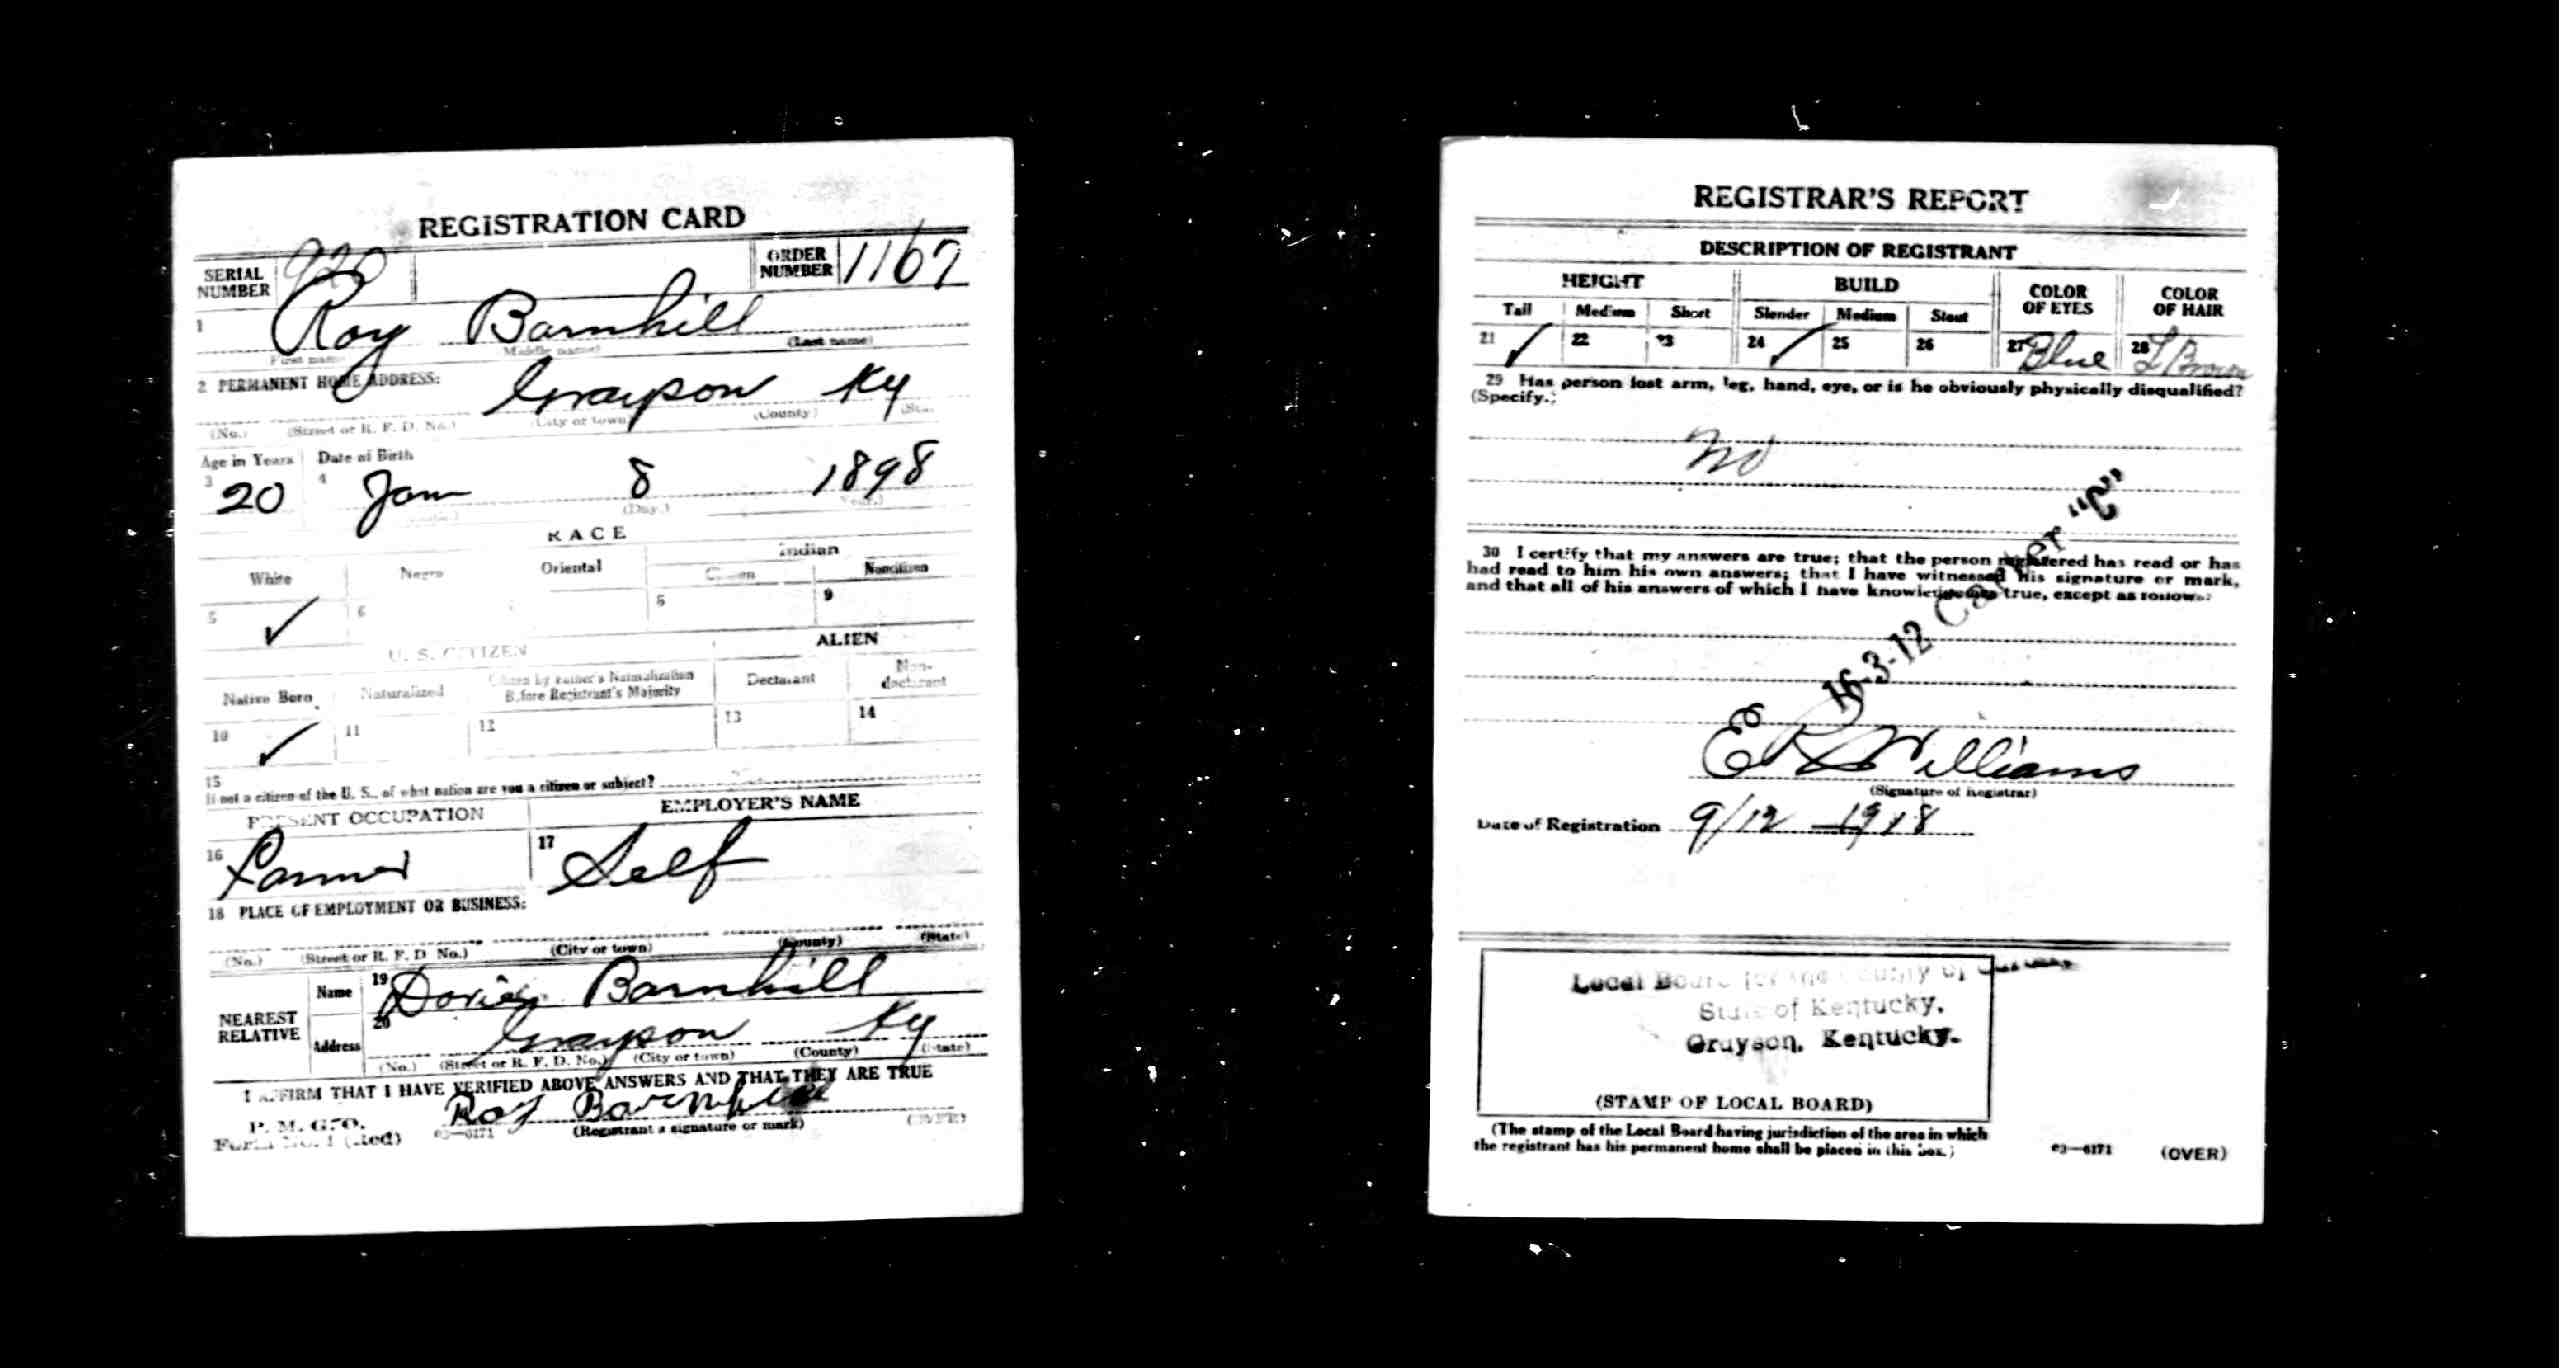 REGISTRATION CARD
SERIAL NUMBER 920 ORDER NUMBER 1167
1 Roy Barnhill
(First name) (Middle name) (Last name)
2 PERMANENT HOME ADDRESS:
Grayson Ky
(No.) (Street or R. F. D. No.) (City or town) (County)
Age in Years Date of Birth
3 20 4 Jan 8 1898
(Day.) (Year.)
RACE
White Negro Oriental Indian
Citizen Noncitizen
5 ✓ 6 8 9
U. S. CITIZEN ALIEN
Native Born Naturalized Citizen by Father's Naturalization Before Registrant's Majority Declarant Non-declarant
10 ✓ 11 12 13 14
15
If not a citizen of the U. S., of what nation are you a citizen or subject?
PRESENT OCCUPATION EMPLOYER'S NAME
16 Farmer 17 Self
18 PLACE OF EMPLOYMENT OR BUSINESS:
(No.) (Street or R. F. D. No.) (City or town) (County) (State)
NEAREST RELATIVE Name 19 Barnhill
Address 20 Grayson Ky
(No.) (Street or R. F. D. No.) (City or town) (County) (State)
I AFFIRM THAT I HAVE VERIFIED ABOVE ANSWERS AND THAT THEY ARE TRUE
P. M. G. O.
Form No. 1 (Red) 03—6171 Roy Barnhill
(Registrant's signature or mark) (OVER)
REGISTRAR'S REPORT
DESCRIPTION OF REGISTRANT
HEIGHT BUILD COLOR OF EYES COLOR OF HAIR
Tall Medium Short Slender Medium Stout
21 ✓ 22 23 24 ✓ 25 26 27 Blue 28 L Brown
29 Has person lost arm, leg, hand, eye, or is he obviously physically disqualified?
(Specify.)
no
30 I certify that my answers are true; that the person registered has read or has
had read to him his own answers; that I have witnessed his signature or mark,
and that all of his answers of which I have knowledge are true, except as follows:
16-3-12 Carter "C"
Williams
(Signature of Registrar)
Date of Registration 9/12 — 1918
Local Board for the County of Carter
State of Kentucky,
Grayson, Kentucky.
(STAMP OF LOCAL BOARD)
(The stamp of the Local Board having jurisdiction of the area in which
the registrant has his permanent home shall be placed in this box.)
03—6171 (OVER)